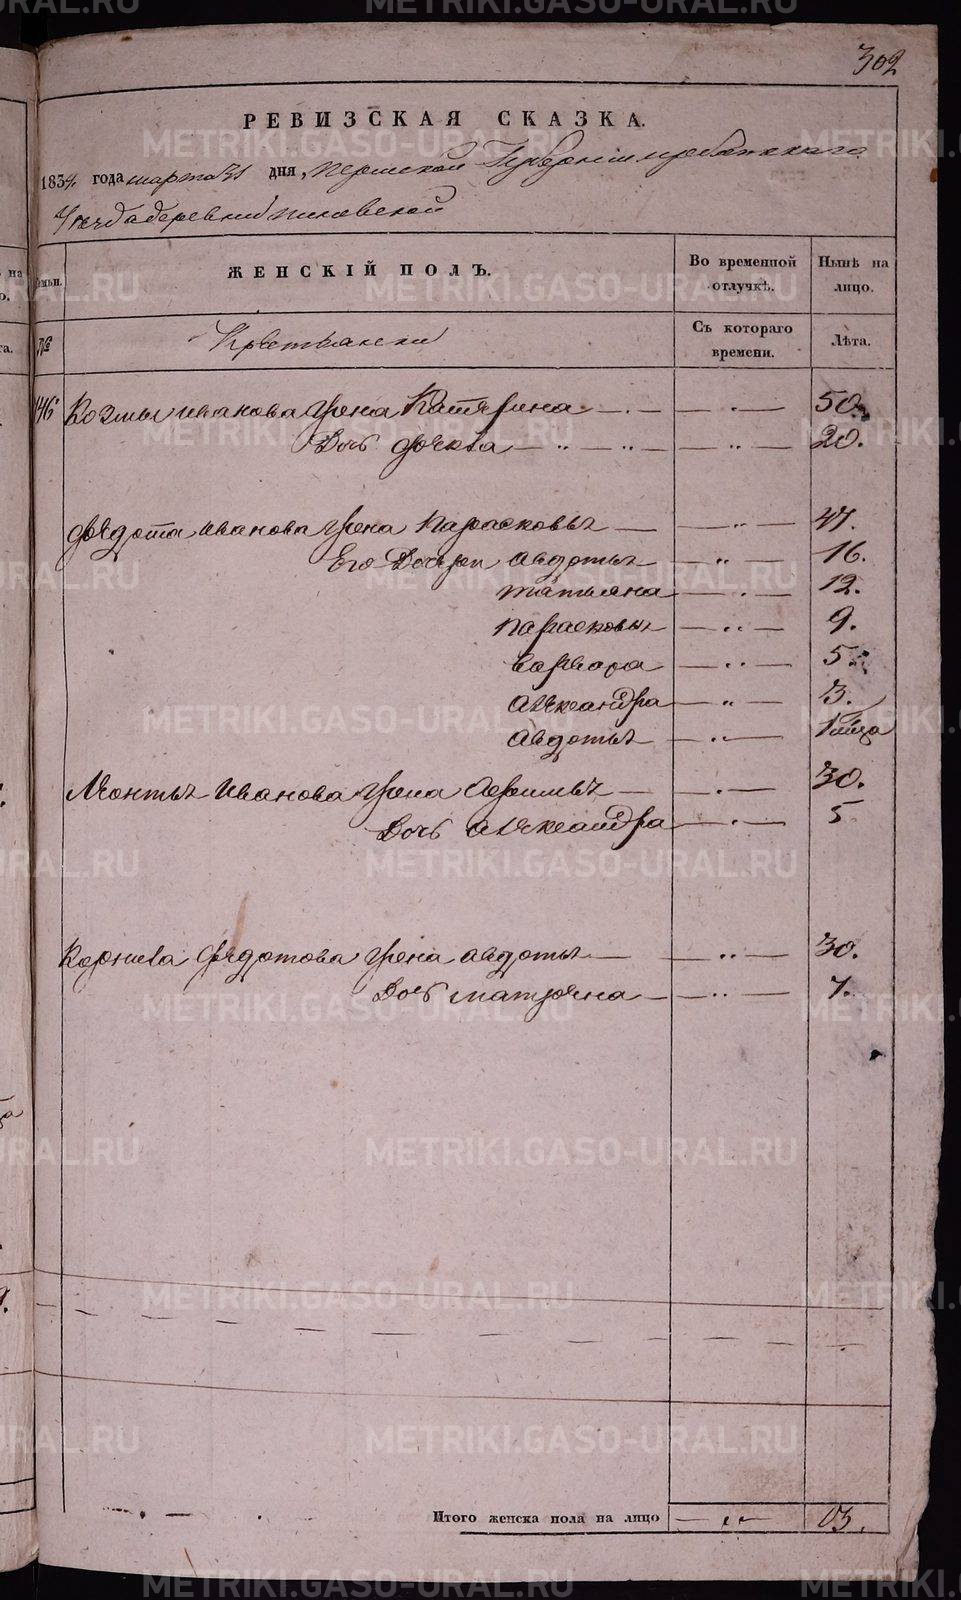 302
РЕВИЗСКАЯ СКАЗКА.
1834 года марта 31 дня, Пермской Губернии ирбитскаго
Уезда деревни
на лицо. Семьи. ЖЕНСКІЙ ПОЛЪ. Во временной отлучкѣ. Нынѣ на лицо.
та. № Крестьянски Съ котораго времени. Лѣта.
146 Козмы иванова жена Катярина — . — — . — 50.
Дочь фокла — .. — .. — — .. — 20.
Федота иванова жена Парасковья — — .. — 47.
Его Дочери авдотья — — .. — 16.
татьяна — — . — 12.
парасковья — — .. — 9.
варвара — — .. — 5.
александра — — .. — 3.
авдотья — — .. — 1 мца
Леонтья Иванова жена Афимья — — . — 30.
Дочь александра — — . — 5
Корнила федотова жена авдотья — — .. — 30.
Дочь матрона — — .. — 7.
Итого женска пола на лицо — .. — 13.
METRIKI.GASO-URAL.RU